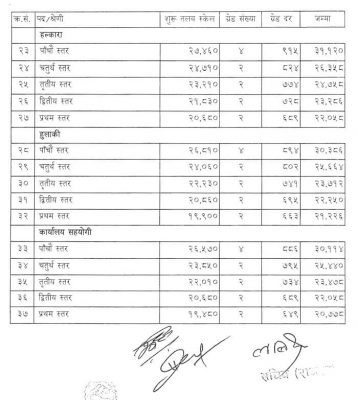 क्र.सं. पद/श्रेणी शुरू तलव स्केल ग्रेड संख्या ग्रेड दर जम्मा
हल्कारा
२३ पाँचौं स्तर २७,४६० ४ ९१५ ३१,१२०
२४ चतुर्थ स्तर २४,७१० २ ८२४ २६,३५८
२५ तृतीय स्तर २३,२१० २ ७७४ २४,७५८
२६ द्वितीय स्तर २१,८३० २ ७२८ २३,२८६
२७ प्रथम स्तर २०,६८० २ ६८९ २२,०५८
हुलाकी
२८ पाँचौं स्तर २६,८१० ४ ८९४ ३०,३८६
२९ चतुर्थ स्तर २४,०६० २ ८०२ २५,६६४
३० तृतीय स्तर २२,२३० २ ७४१ २३,७१२
३१ द्वितीय स्तर २०,८६० २ ६९५ २२,२५०
३२ प्रथम स्तर १९,९०० २ ६६३ २१,२२६
कार्यालय सहयोगी
३३ पाँचौं स्तर २६,५७० ४ ८८६ ३०,११४
३४ चतुर्थ स्तर २३,८५० २ ७९५ २५,४४०
३५ तृतीय स्तर २२,०१० २ ७३४ २३,४७८
३६ द्वितीय स्तर २०,६८० २ ६८९ २२,०५८
३७ प्रथम स्तर १९,४८० २ ६४९ २०,७७८